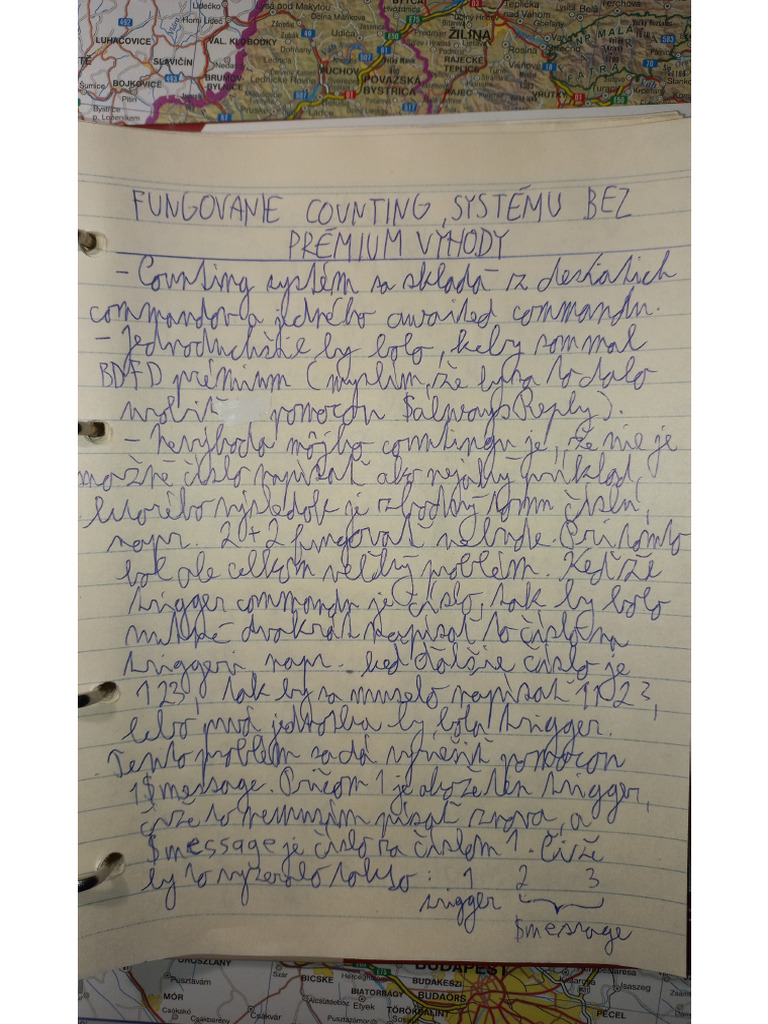 LUHAČOVICE
VAL. KLOBOUKY
SLAVIČÍN
BOJKOVICE
BRUMOV-
BYLNICE
PÚCHOV
POVAŽSKÁ
BYSTRICA
ŽILINA
RAJECKÉ
TEPLICE
RAJEC
VRÚTKY
FUNGOVANIE COUNTING SYSTÉMU BEZ
PRÉMIUM VÝHODY
- Counting systém sa skladá iz desiatich
commandov a jedného awaited commandu.
- Jednoduchšie by bolo, keby som mal
BDFD prémium (myslím, že by sa to dalo
urobiť pomocou $alwaysReply).
- Nevýhoda môjho countingu je, že nie je
možné číslo napísať ako nejaký príklad,
ktorého výsledok je zhodný tomu číslu,
napr. 2+2 fungovať nebude. Pri tomto
bol ale celkom veľký problém. Keďže
trigger commandu je číslo, tak by bolo
nutné dvakrát napísať to číslo na
triggeri napr. keď ďalšie číslo je
123, tak by sa muselo napísať 1123,
lebo prvá jednotka by bola trigger.
Tento problém sa dá vyriešiť pomocou
1$message. Pričom 1 je akože ten trigger,
čiže to nemusím písať znova, a
$message je číslo za číslom 1. Čiže
by to vyzeralo takto: 1 2 3
trigger
$message
OROSZLÁNY
Pusztavám
MÓR
Szár
BICSKE
BIATORBÁGY
Etyek
BUDAPEST
BUDAKESZI
BUDAÖRS
TÖRÖKBÁLINT
Isaszeg
PÉCEL